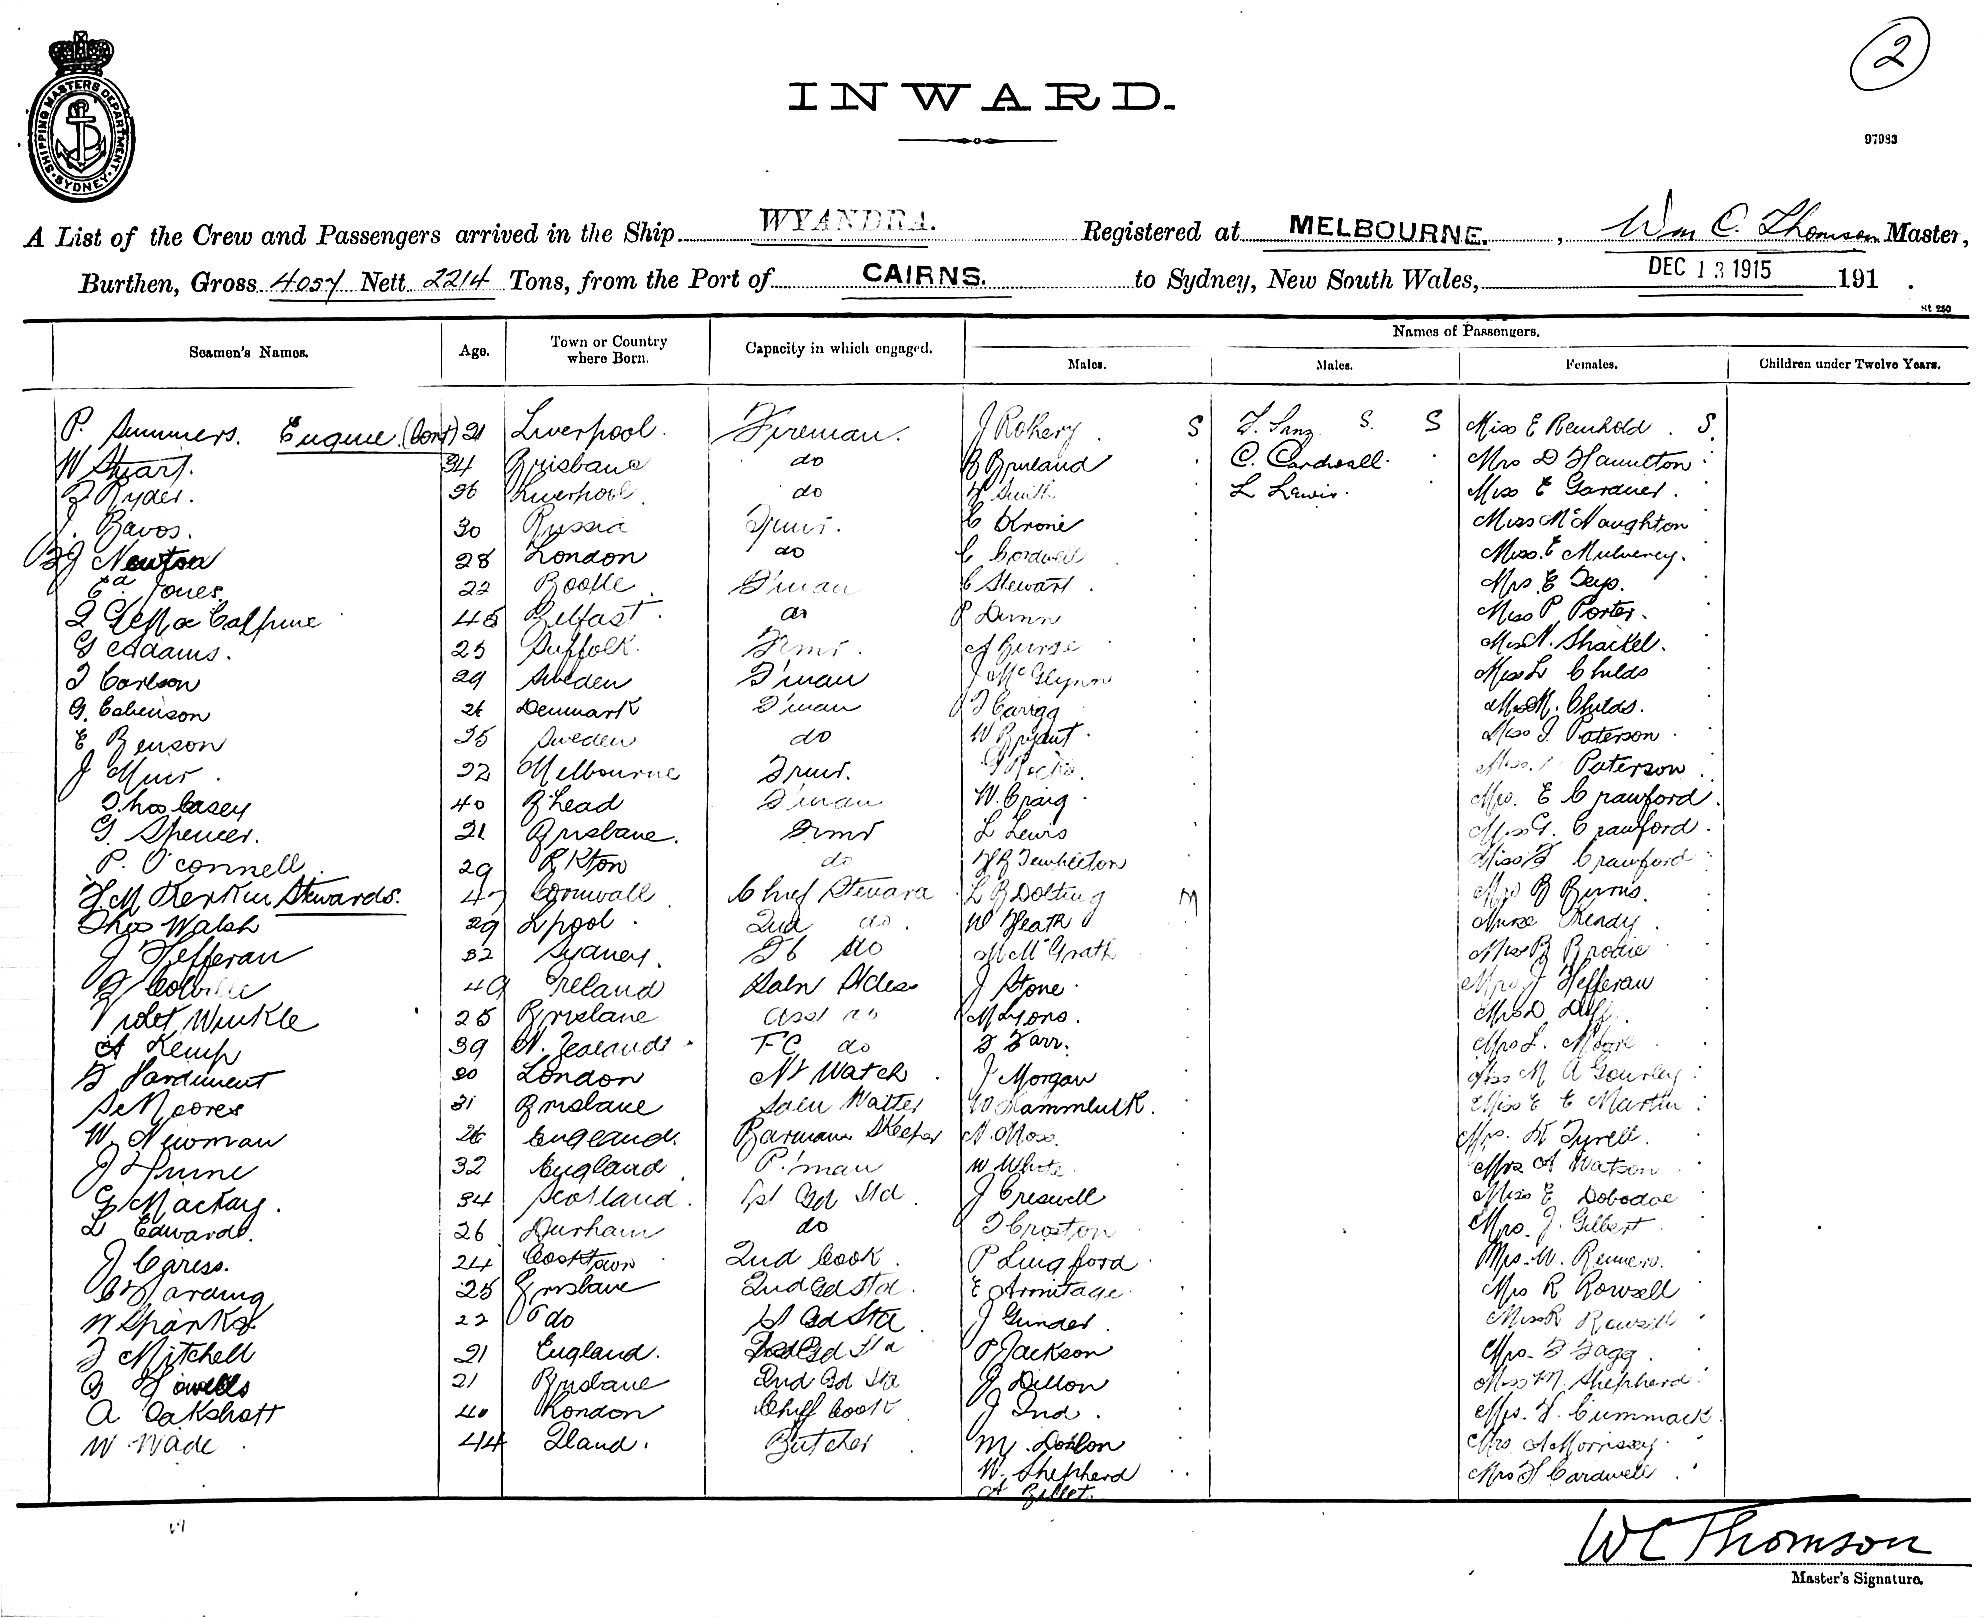 2
SHIPPING MASTERS DEPARTMENT
SYDNEY
INWARD.
97083
A List of the Crew and Passengers arrived in the Ship WYANDRA. Registered at MELBOURNE. , Wm C. Thomson Master,
Burthen, Gross 4057 Nett 2214 Tons, from the Port of CAIRNS. to Sydney, New South Wales, DEC 13 1915 191 .
St 250
Names of Passengers.
Seamen's Names. Age. Town or Country where Born. Capacity in which engaged. Males. Males. Females. Children under Twelve Years.
P. Summers. Engine (Cont) 21 Liverpool. Fireman. J Rokery S S. S Miss E Reinhold. S.
W Stuart. 34 Brisbane do Bruland C. Cardwall. Mrs D Hamilton
Ryder. 26 Liverpool. do Smith L Lewis. Miss E Gardner.
Bavos. 30 Russia C Krone Miss McNaughton
J Newton 28 London do C Cordwell Miss. E Mulverey.
Jones. 22 Bootle F'man C Stewart Mrs E Tays.
45 Belfast. do P Dunn Miss P Porter.
G Adams. 25 Suffolk. A Burse Miss N. Shaikel.
T Carlson 29 Sweden F'man J McGlynn Miss L Childs
G. Cabenson 26 Denmark F'man T Carigg Miss M. Childs.
E Benson 35 Sweden do W Bryant Miss J Paterson
J Muir 32 Melbourne Paterson
Thos Casey 40 B'head F'man W. Craig Mrs. E Crawford.
G. Spencer. 21 Brisbane. L Lewis Miss G. Crawford.
P. O'Connell. 29 R Kton do Templeton Miss Crawford
Stewards. 47 Cornwall Chief Steward L B Dolting M Mrs B Burns.
Thos Walsh 29 Lpool. 2nd do. W Heath Nurse Kendy
J Hefferan 32 Sydney. do M McGrath Miss B Brodie
Colville 40 Ireland Saln Stdes J Stone Mrs J Hefferan
Violet Winkle 25 Brisbane Asst do M Lyons. Mrs D Duff.
A Kemp 39 N. Zealand FC do F Farr. Mrs L. Moore
Pardiment 30 London Nt Watch J Morgan Miss M A Gourley
S Moores 31 Brisbane Saln Waiter W Hammluck. Miss E E Martin
W. Newman 26 England. Barman SKeeper N. Moss. Mrs. K Tyrell.
32 England P'man W White Mrs A Watson
G Mackay. 34 Scotland. 1st Gd Std J Creswell Miss E Dobodoe
L Edwards. 26 Durham do T Croston Mrs. J. Gilbert
J Caress. 24 Cooktown 2nd Cook. P Lingford Mrs. W. Renners.
Harding 25 Brisbane 2nd Gd Std. E Armitage Mrs R Rowsell
W Sparks 22 do 1st Gd Std J Gunder. Miss R Rowsell
T Mitchell 21 England. Gd Std P Jackson Mrs. F Fagg.
Howells 21 Brisbane 2nd Gd Std J Dillon Miss M. Shepherd
A Oakshott 40 London Chief Cook J Ind. Mrs. Cummack
W Wade 44 Butcher M. Donlon Mrs A Morrissey
W. Shepherd Mrs H Cardwell
A Billet.
W C Thomson
Master's Signature.